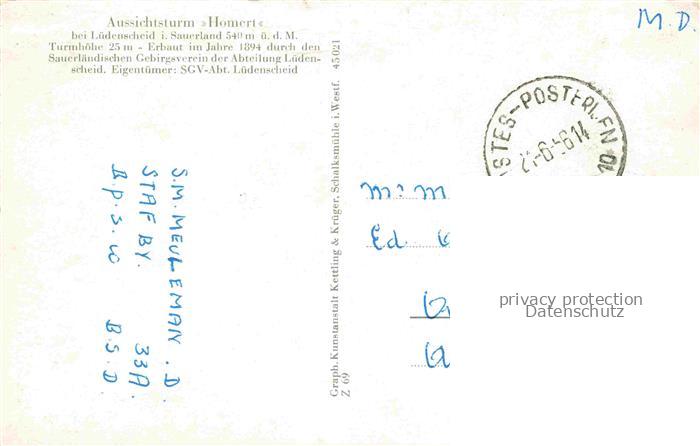 Aussichtsturm »Homert«
bei Lüdenscheid i. Sauerland 540 m ü. d. M.
Turmhöhe 25 m - Erbaut im Jahre 1894 durch den
Sauerländischen Gebirgsverein der Abteilung Lüden-
scheid. Eigentümer: SGV-Abt. Lüdenscheid
M.D.
STES-POSTERIJEN
Graph. Kunstanstalt Kettling & Krüger, Schalksmühle i. Westf. 45 021
Z 69
S.M. MEULEMAN. D.
STAF BY. 33A.
B.P.S. 10 B.S.D.
Ed.
privacy protection
Datenschutz